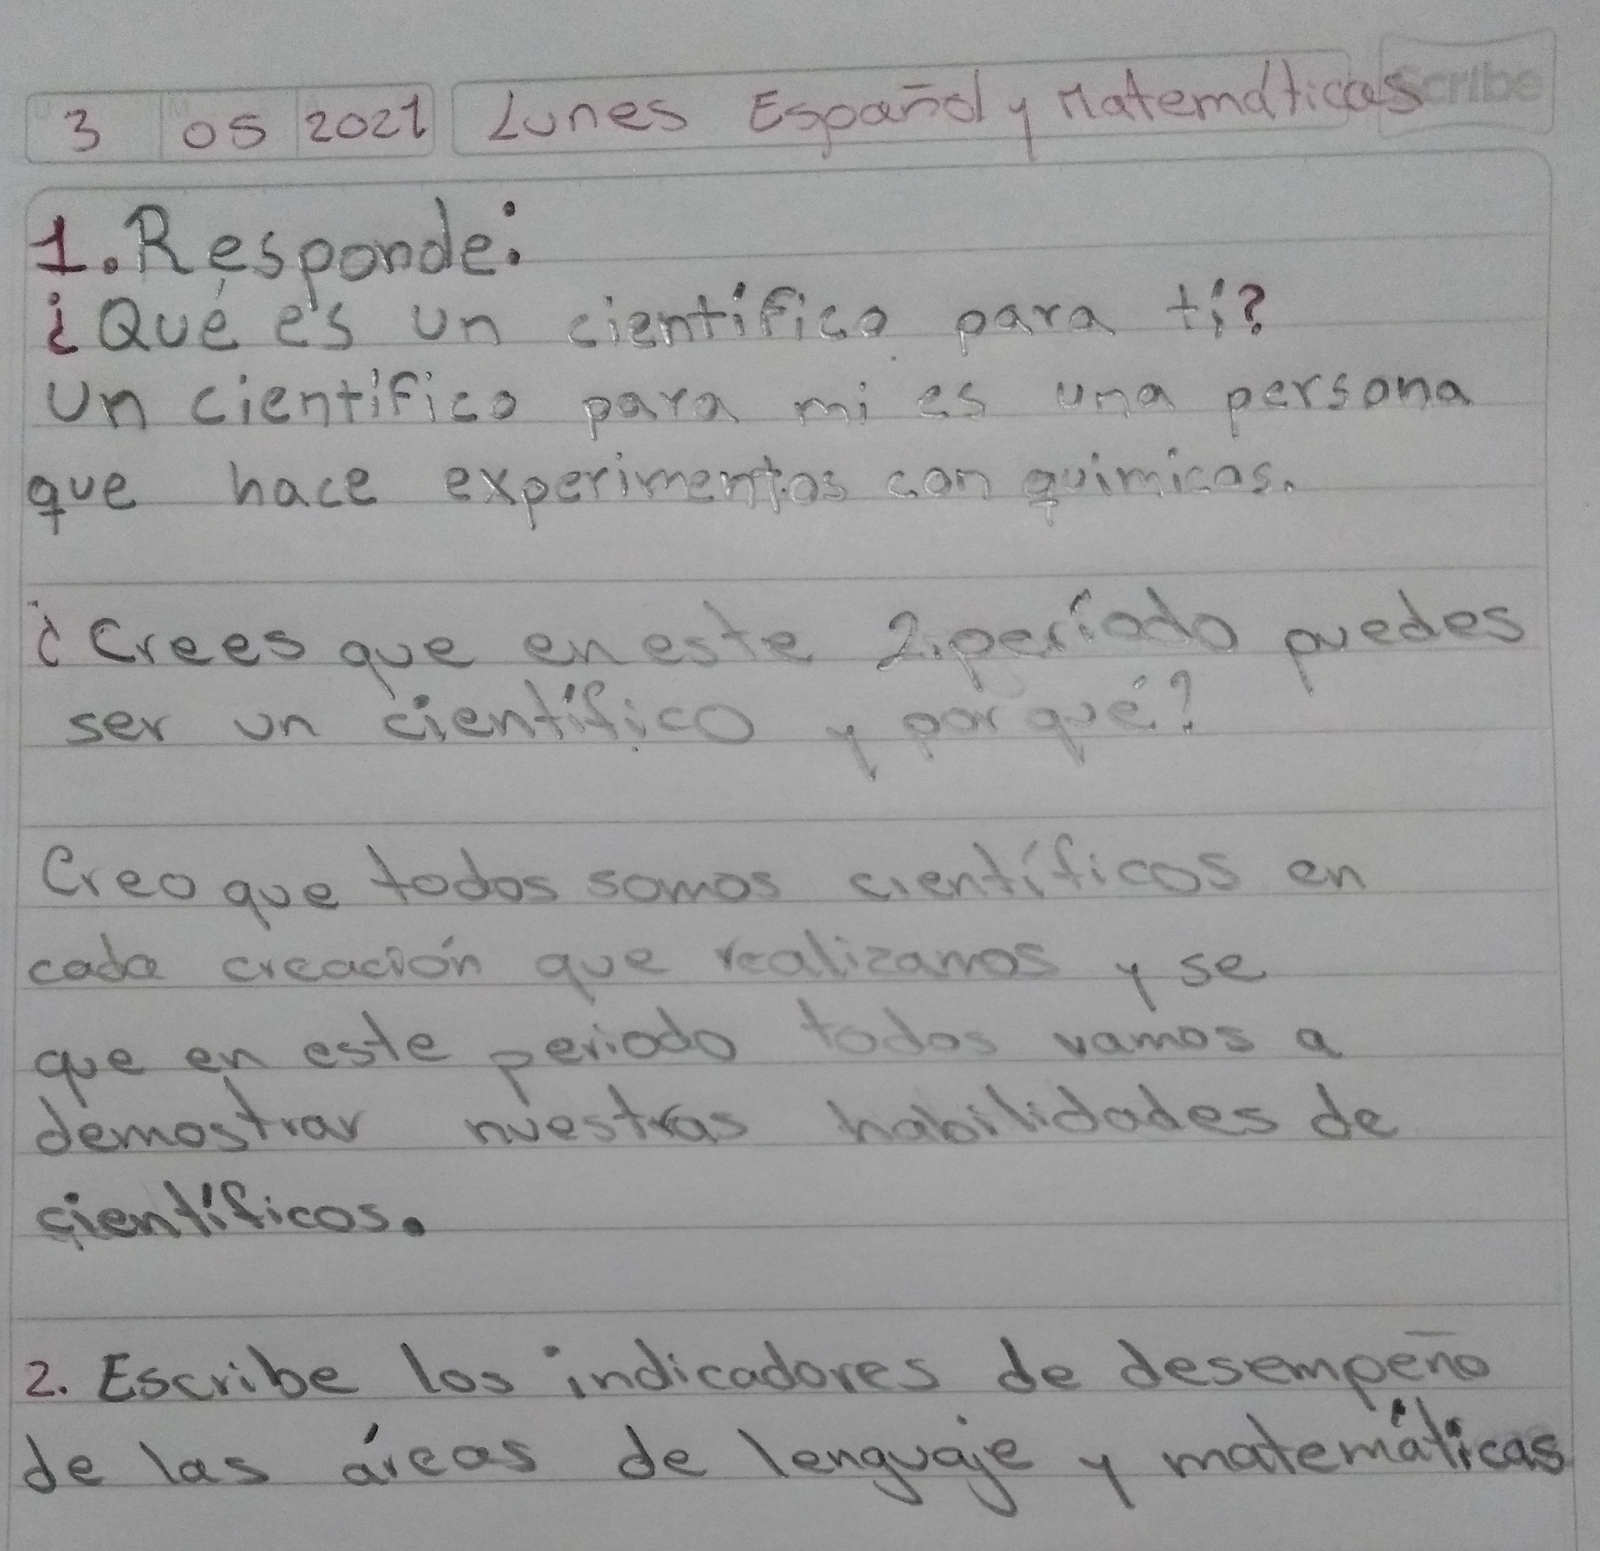 3 05 2021 Lunes Español y Matemáticas Scribe
1. Responde:
¿Qué es un científico para tí?
Un científico para mi es una persona
que hace experimentos con quimicos.
¿Crees que en este 2.período puedes
ser un científico y por qué?
Creo que todos somos científicos en
cada creación que realizamos y se
que en este periodo todos vamos a
demostrar nuestras habilidades de
científicos.
2. Escribe los indicadores de desempeño
de las áreas de lenguaje y matemáticas